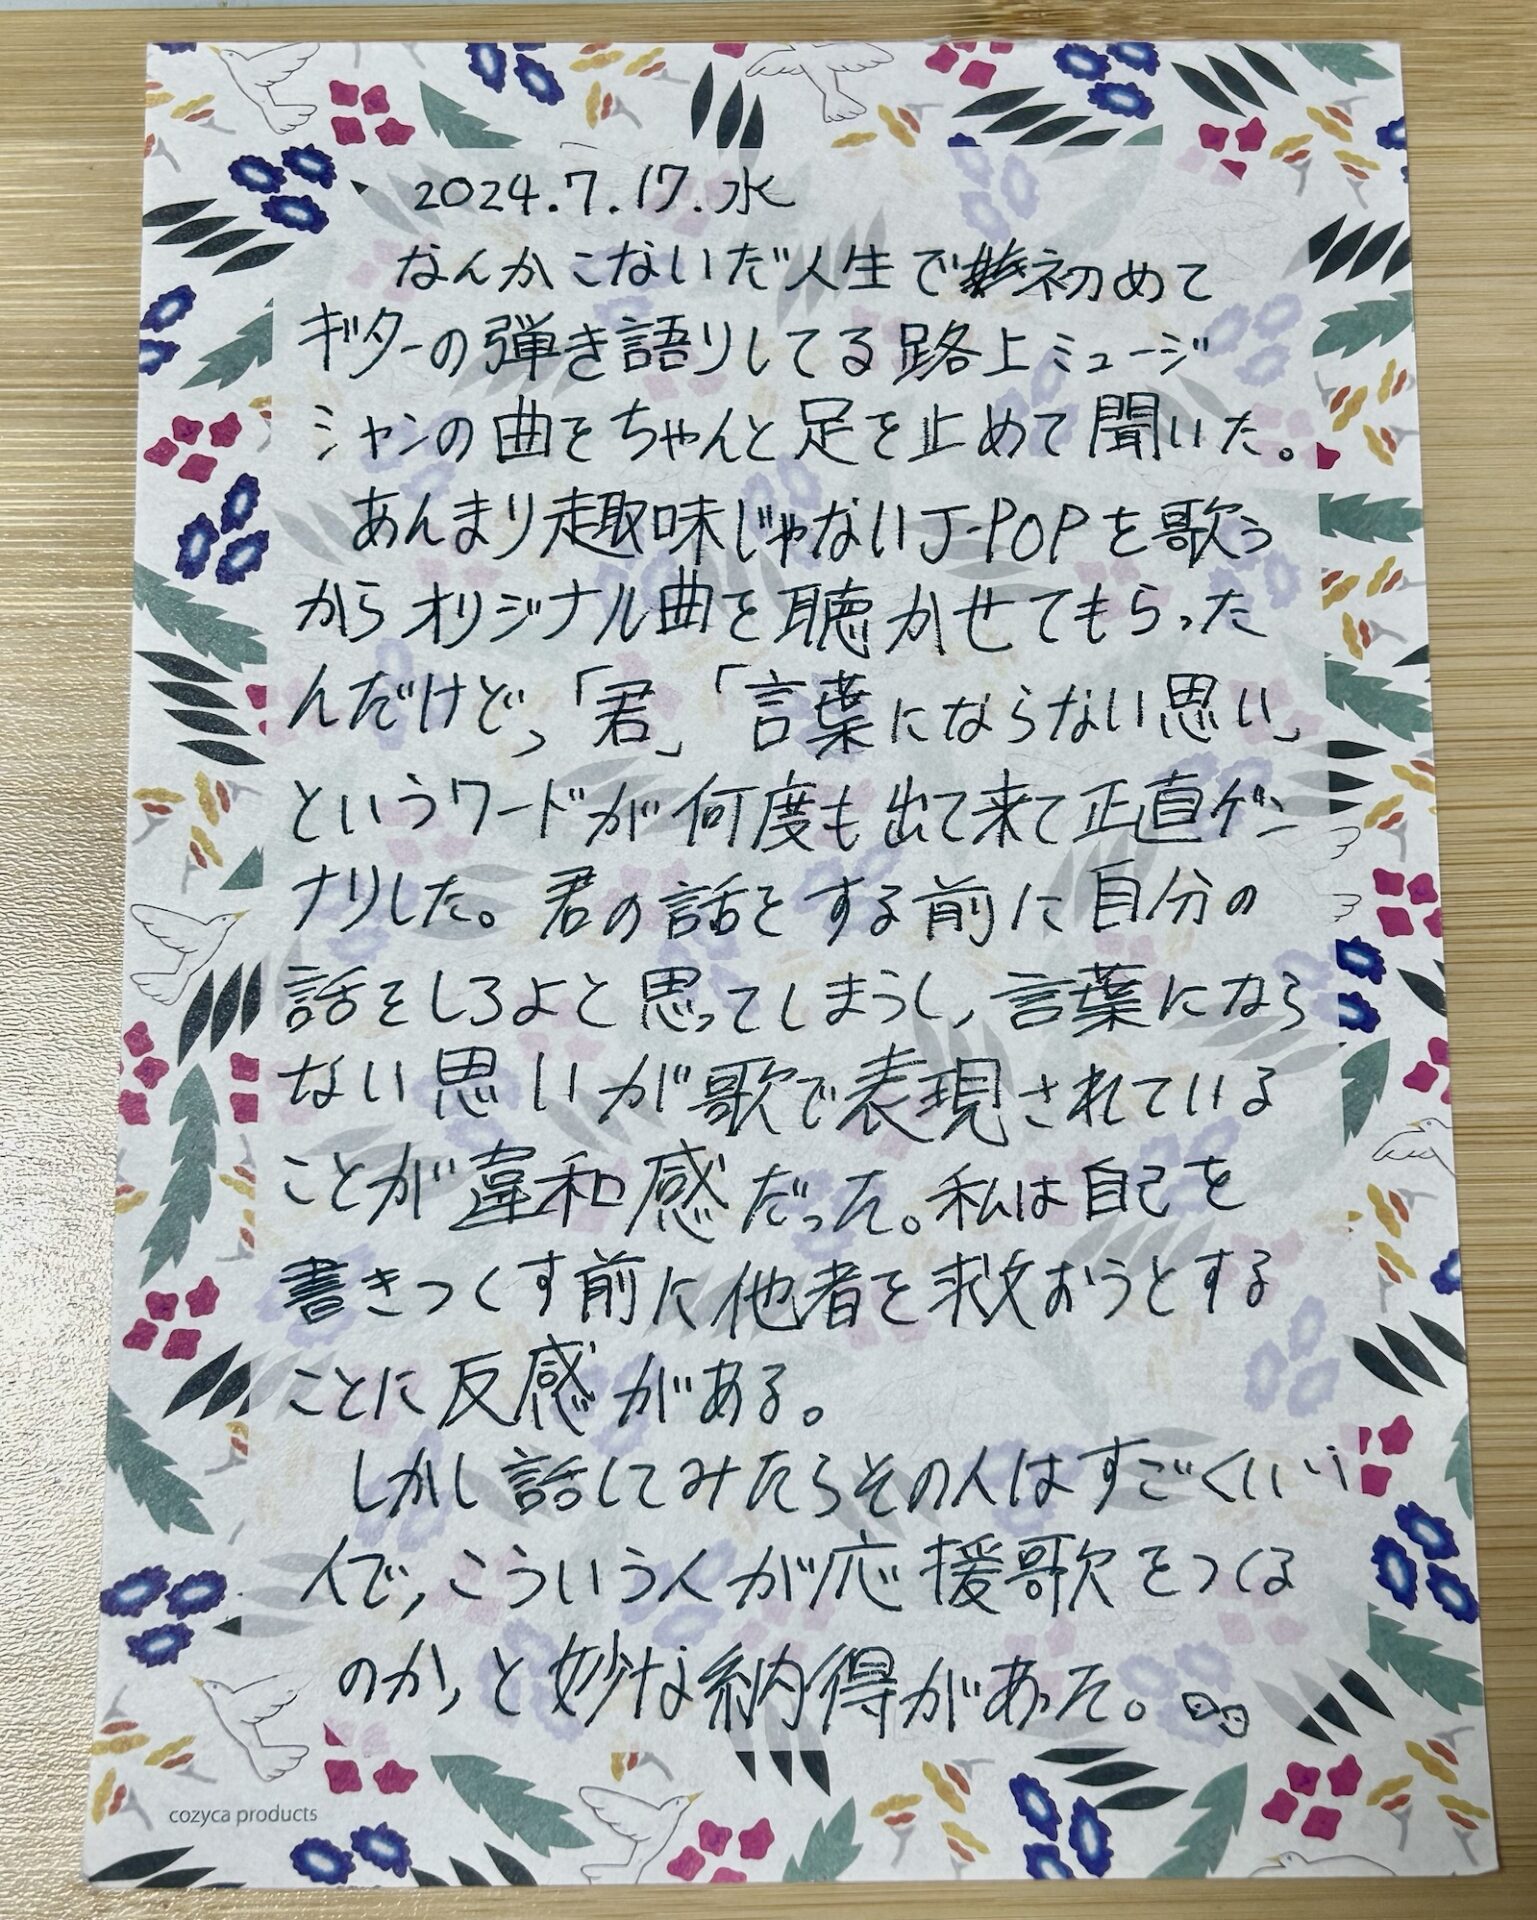 2024.7.17.水
なんかこないだ人生で初めて
ギターの弾き語りしてる路上ミュージ
シャンの曲をちゃんと足を止めて聞いた。
あんまり趣味じゃないJ-POPを歌う
からオリジナル曲を聴かせてもらった
んだけど、「君」「言葉にならない思い」
というワードが何度も出て来て正直ゲン
ナリした。君の話をする前に自分の
話をしろよと思ってしまうし、言葉になら
ない思いが歌で表現されている
ことが違和感だった。私は自己を
書きつくす前に他者を救おうとする
ことに反感がある。
しかし話してみたらその人はすごくいい
人で、こういう人が応援歌をつくる
のか、と妙な納得があった。
cozyca products